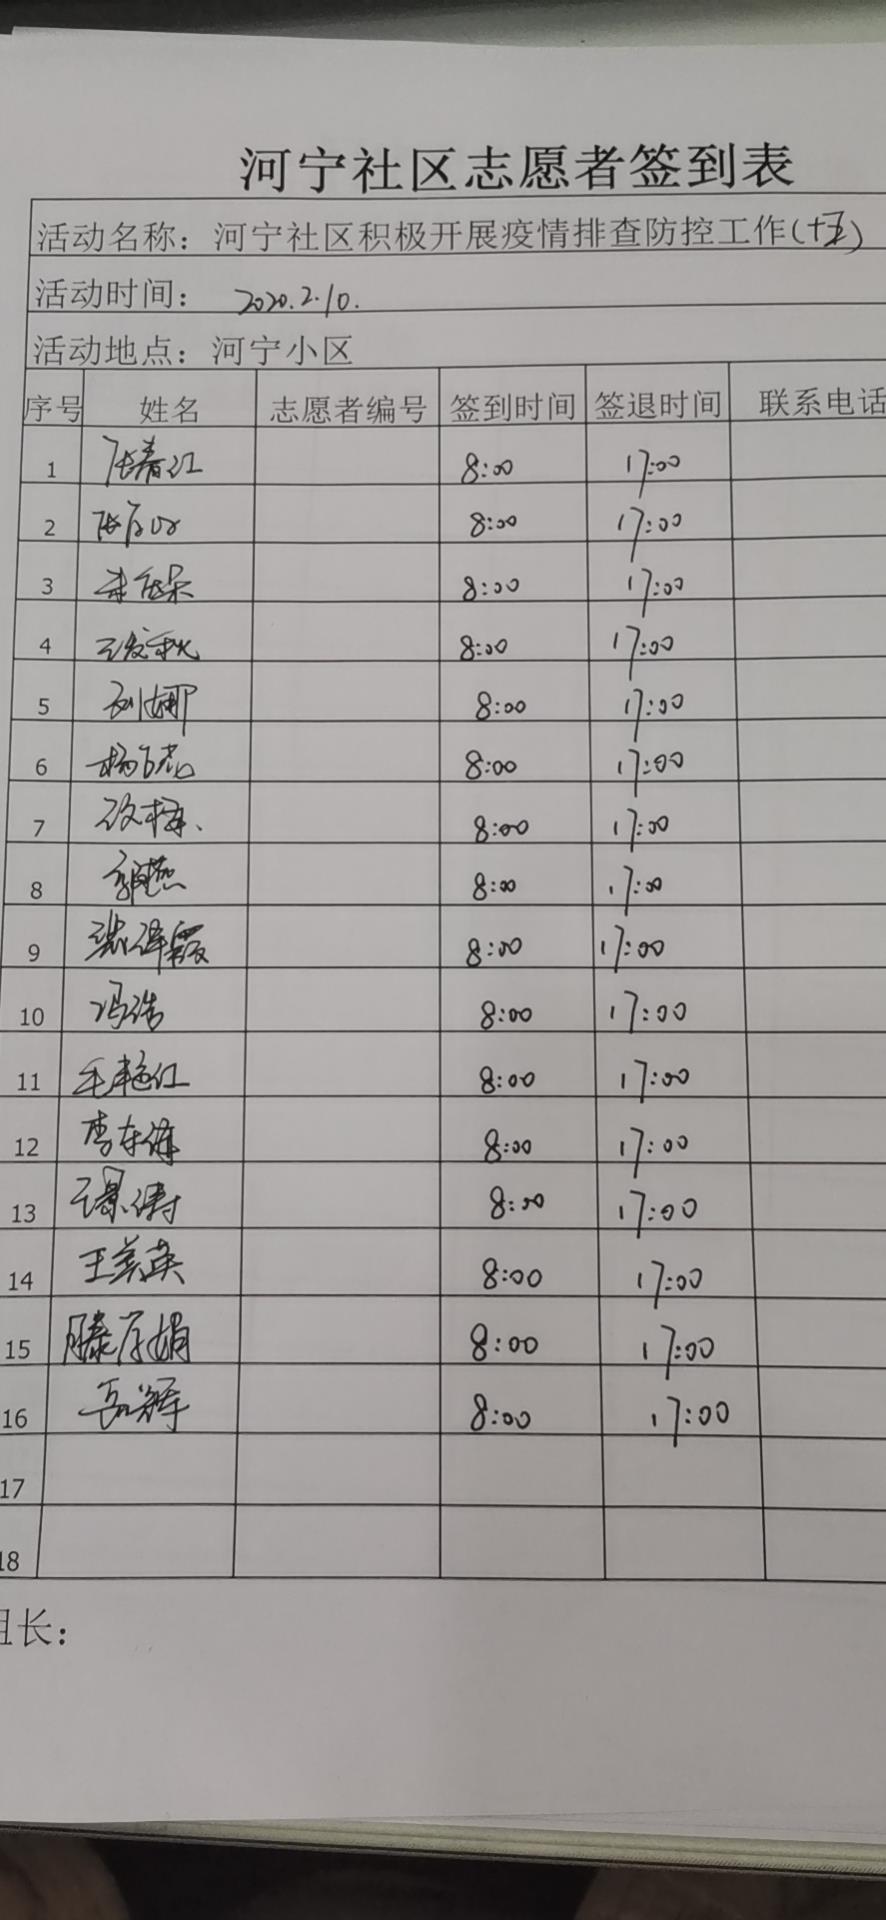 河宁社区志愿者签到表
活动名称：河宁社区积极开展疫情排查防控工作（十五）
活动时间：2020.2.10.
活动地点：河宁小区
序号 姓名 志愿者编号 签到时间 签退时间 联系电话
1 张春江 8:00 17:00
2 8:00 17:00
3 8:00 17:00
4 8:00 17:00
5 刘娜 8:00 17:00
6 8:00 17:00
7 8:00 17:00
8 郭燕 8:00 17:00
9 8:00 17:00
10 冯浩 8:00 17:00
11 毛艳红 8:00 17:00
12 8:00 17:00
13 8:00 17:00
14 王美英 8:00 17:00
15 滕月娟 8:00 17:00
16 8:00 17:00
17
18
组长：